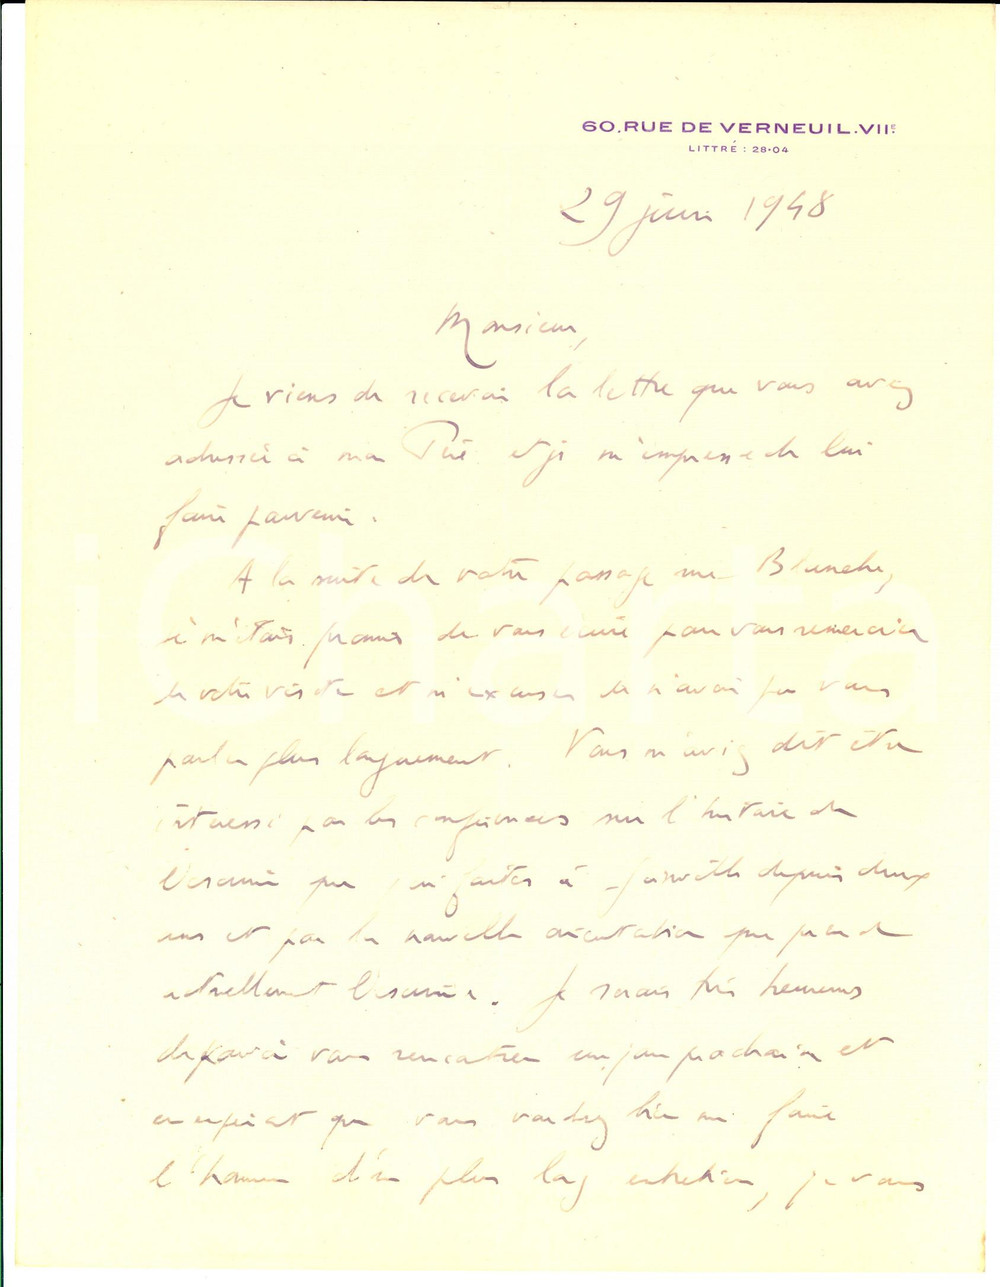 60, RUE DE VERNEUIL. VIIE
LITTRÉ : 28-04
29 juin 1948
Monsieur,
Je viens de recevoir la lettre que vous avez
adressée à mon Père et je m'empresse de lui
faire parvenir.
A la suite de votre passage rue Blanche,
je m'étais promis de vous écrire pour vous remercier
de votre visite et m'excuser de n'avoir pu vous
parler plus longuement. Vous m'aviez dit être
intéressé par les conférences sur l'histoire de
l'escrime que j'ai faites à Joinville depuis deux
ans et par la nouvelle orientation que prend
actuellement l'escrime. Je serais très heureux
de pouvoir vous rencontrer un jour prochain et
en espérant que vous voudrez bien me faire
l'honneur d'un plus long entretien, je vous
iCharta